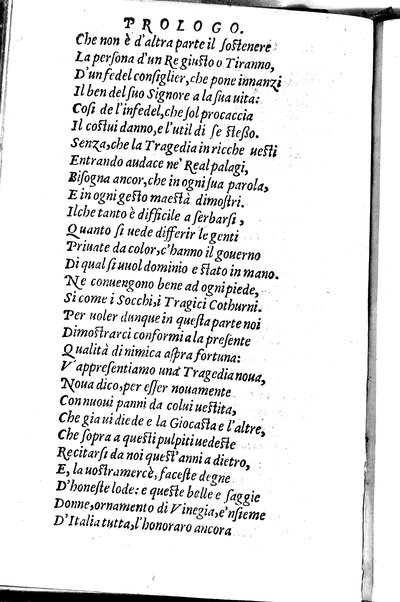 PROLOGO.
Che non è d'altra parte il ſostenere
La perſona d'un Re giuſto o Tiranno,
D'un fedel conſiglier, che pone innanzi
Il ben del ſuo Signore a la ſua uita:
Coſi de l'infedel, che ſol procaccia
Il coſtui danno, e l'util di ſe ſteßo.
Senza, che la Tragedia in ricche ueſti
Entrando audace ne' Real palagi,
Biſogna ancor, che in ogni ſua parola,
E in ogni geſto maeſtà dimoſtri.
Ilche tanto è difficile a ſerbarſi,
Quanto ſi uede differir le genti
Priuate da color, c'hanno il gouerno
Di qual ſi uuol dominio e ſtato in mano.
Ne conuengono bene ad ogni piede,
Si come i Socchi, i Tragici Cothurni.
Per uoler dunque in queſta parte noi
Dimoſtrarci conformi a la preſente
Qualità di nimica aſpra fortuna:
V'appreſentiamo una Tragedia noua,
Noua dico, per eſſer nouamente
Con nuoui panni da colui ueſtita,
Che gia ui diede e la Giocaſta e l'altre,
Che ſopra a queſti pulpiti uedeſte
Recitarſi da noi queſt'anni a dietro,
E, la uoſtra mercè, faceſte degne
D'honeſte lode: e queſte belle e ſaggie
Donne, ornamento di Vinegia, e'nſieme
D'Italia tutta, l'honoraro ancora